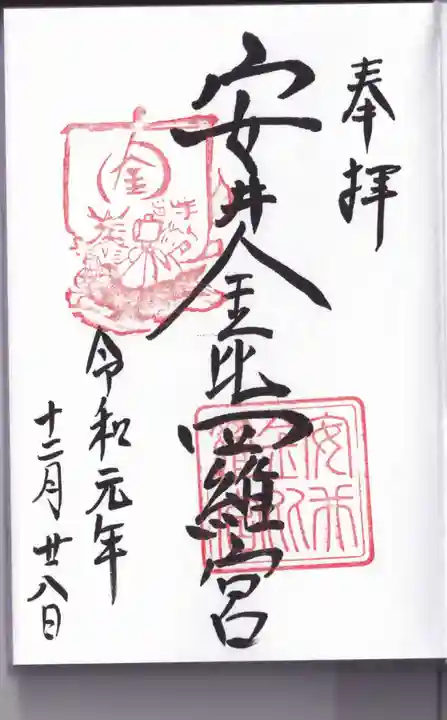 奉拝
安井金比羅宮
金
令和元年
十二月廿八日